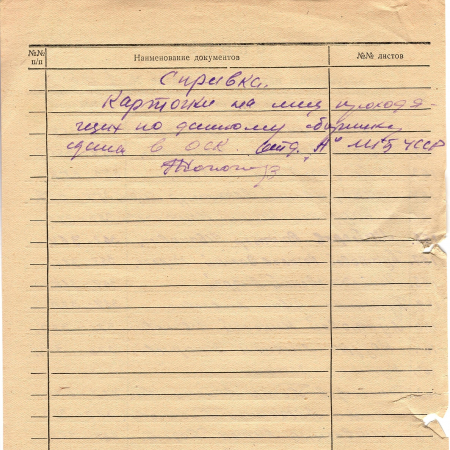 №№ п/п Наименование документов №№ листов
Справка.
Карточки на лиц проходя-
щих по данному сборнику
сданы в ОСК отд. "А" МГБ УССР